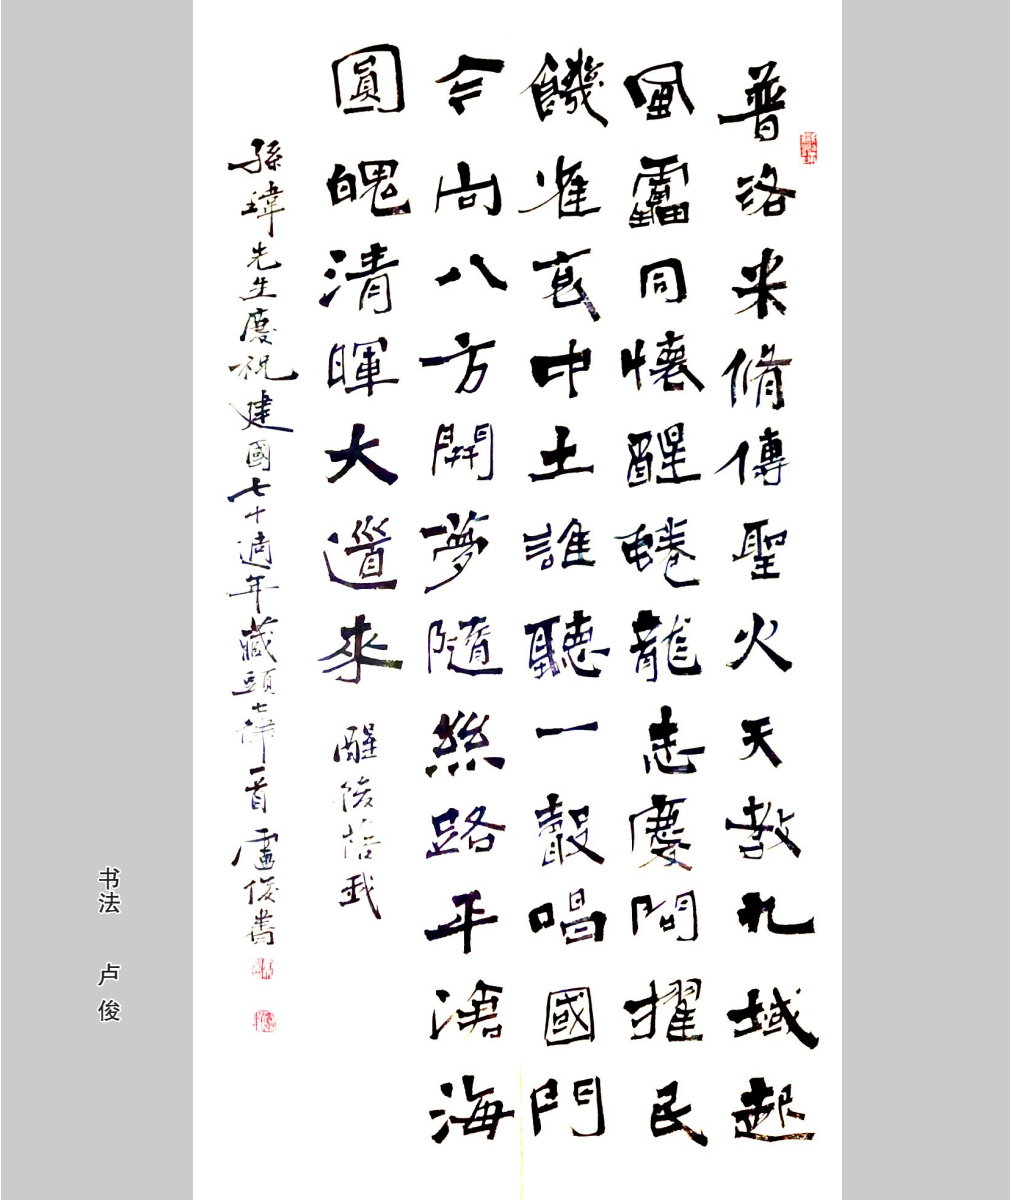 普洛米脩傳聖火天教九域起
風雷同懷醒蜷龍志慶問耀民
饑雀哀中土誰聽一聲唱國門
今向八方開夢隨絲路平滄海
圓魄清暉大道來 醒後落我
孫瑋先生慶祝建國七十週年藏頭七律一首 盧俊書
书法 卢俊